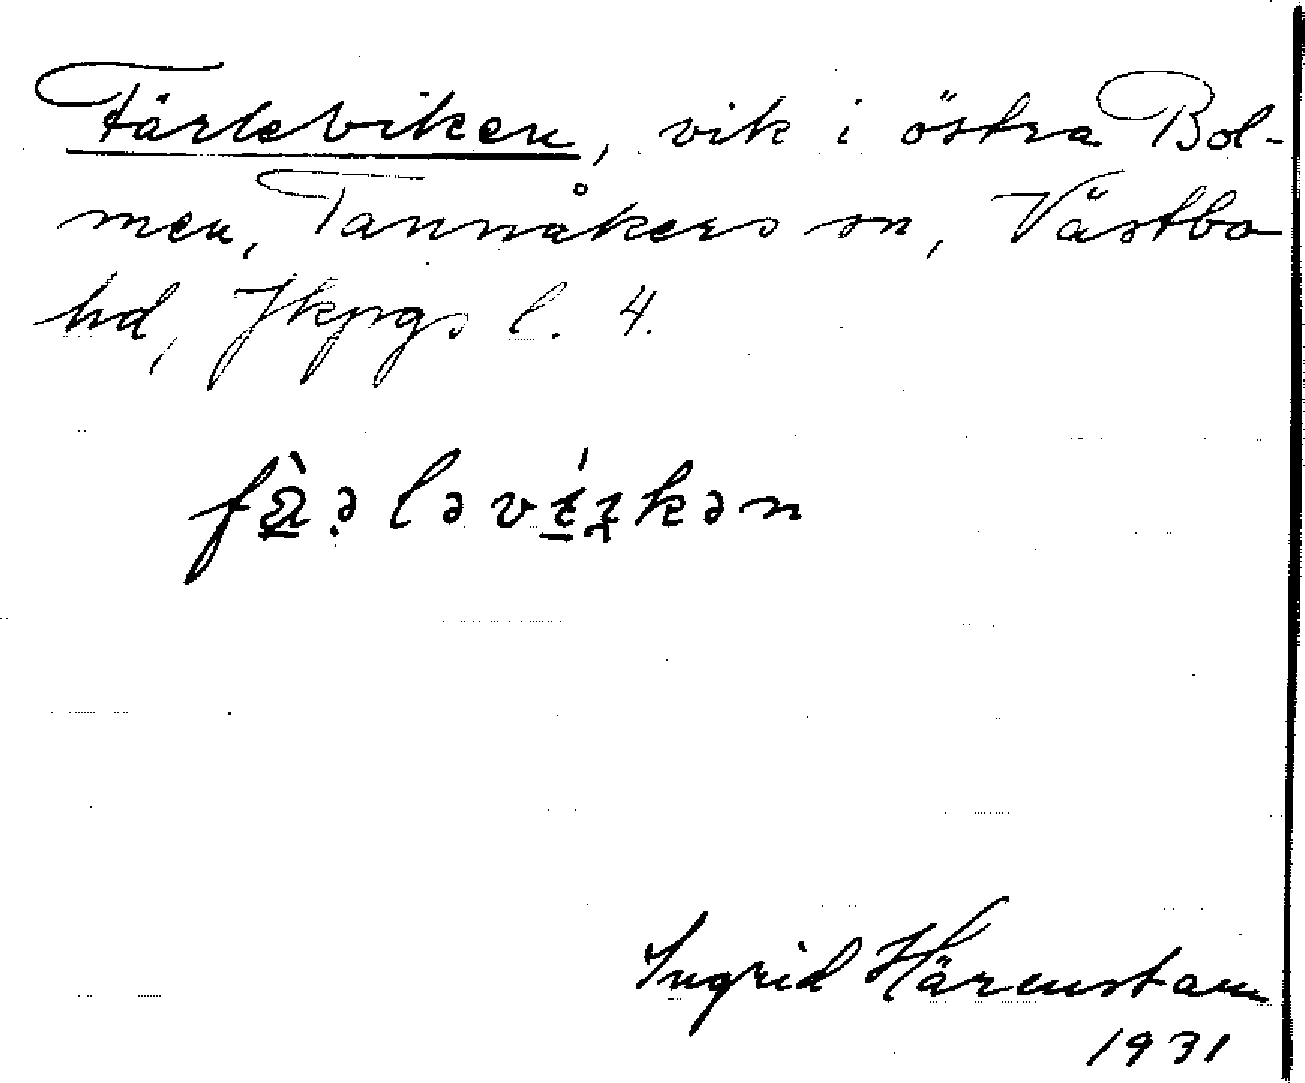 Färleviken, vik i östra Bol-
men, Tannåkers sn, Västbo
hd, Jkpgs l. 4.
Ingrid Härenstam
1931